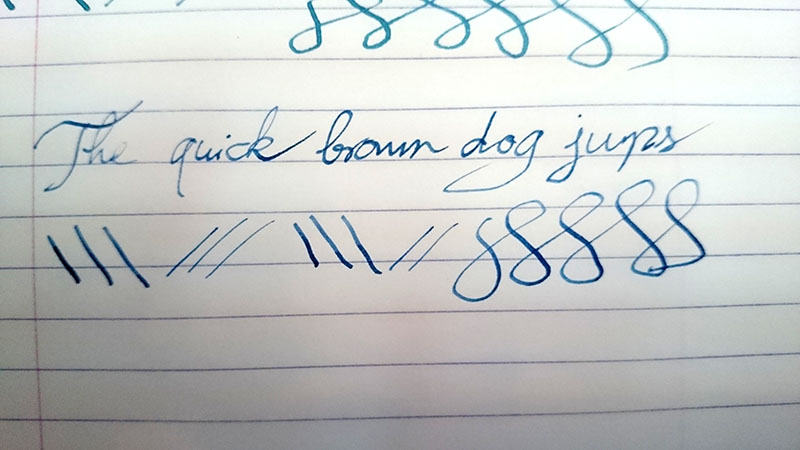 The quick brown dog jumps